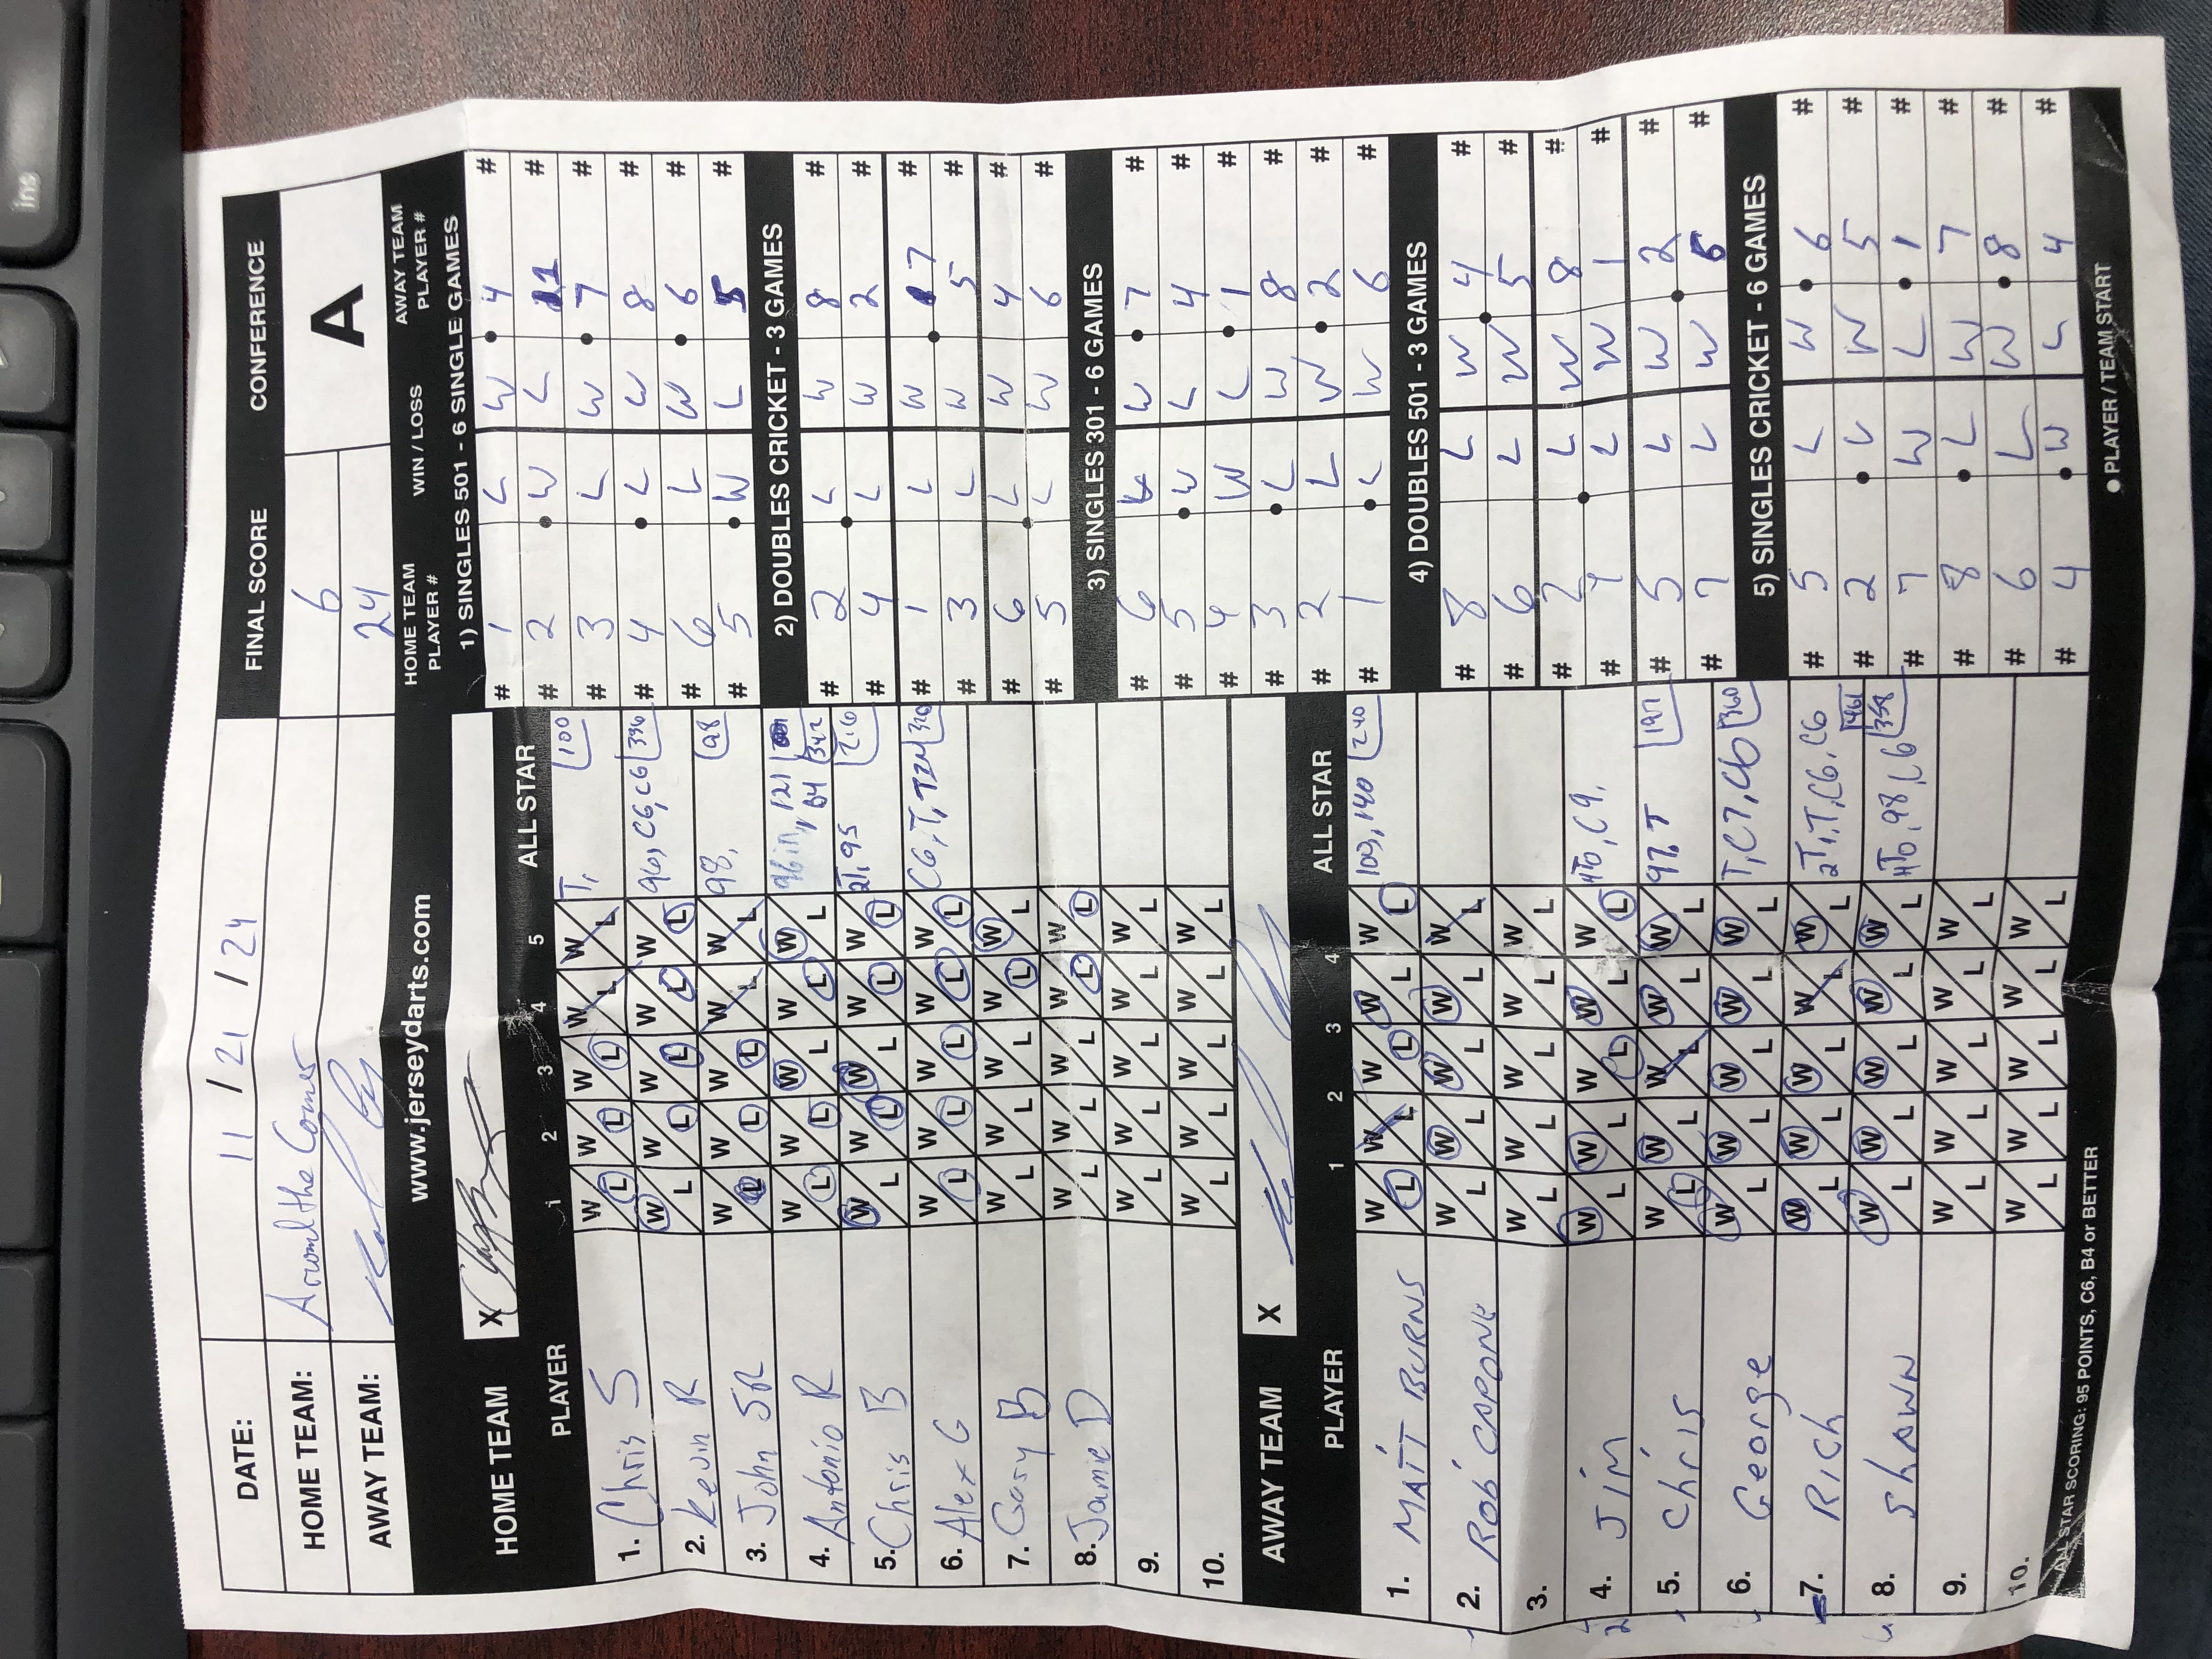 ins
DATE: 11 / 21 / 24
FINAL SCORE
CONFERENCE
HOME TEAM: Around the Corner
6
A
AWAY TEAM:
24
www.jerseydarts.com
HOME TEAM X
PLAYER 1 2 3 4 5 ALL STAR
1. Chris S W L W L W L W L W L T, 100
2. Kevin R W L W L W L W L W L 96, C6, C6 336
3. John SR W L W L W L W L W L 98, 98
4. Antonio R W L W L W L W L W L 96in, 121, B4 342
5. Chris B W L W L W L W L W L 2T, 95
6. Alex G W L W L W L W L W L C6, T, T
7. Gary B W L W L W L W L W L
8. Jamie D W L W L W L W L W L
9. W L W L W L W L W L
10. W L W L W L W L W L
AWAY TEAM X
PLAYER 1 2 3 4 ALL STAR
1. MATT BURNS W L W L W L W L W L 100, 140 240
2. ROB CAPONE W L W L W L W L W L
3. W L W L W L W L W L
4. JIM W L W L W L W L W L C9,
5. Chris W L W L W L W L W L 97, T 197
6. George W L W L W L W L W L T, C7, C6 360
7. RICH W L W L W L W L W L 2T, T, C6, C6
8. ShAWN W L W L W L W L W L 98, C6 358
9. W L W L W L W L W L
10. W L W L W L W L W L
ALL STAR SCORING: 95 POINTS, C6, B4 or BETTER
HOME TEAM PLAYER # WIN / LOSS AWAY TEAM PLAYER #
1) SINGLES 501 - 6 SINGLE GAMES
# 1 L W 4 #
# 2 W L 1 #
# 3 L W 7 #
# 4 L W 8 #
# 6 L W 6 #
# 5 W L 5 #
2) DOUBLES CRICKET - 3 GAMES
# 2 L W 8 #
# 4 L W 2 #
# 1 L W 7 #
# 3 L W 5 #
# 6 L W 4 #
# 5 L W 6 #
3) SINGLES 301 - 6 GAMES
# 6 L W 7 #
# 5 W L 4 #
# 4 W L 1 #
# 3 L W 8 #
# 2 L W 2 #
# 1 L W 6 #
4) DOUBLES 501 - 3 GAMES
# 8 L W 4 #
# 6 L W 5 #
# 2 L W 8 #
# 4 L W 1 #
# 5 L W 2 #
# 7 L W 6 #
5) SINGLES CRICKET - 6 GAMES
# 5 L W 6 #
# 2 L W 5 #
# 7 W L 1 #
# 8 L W 7 #
# 6 L W 8 #
# 4 W L 4 #
● PLAYER / TEAM START